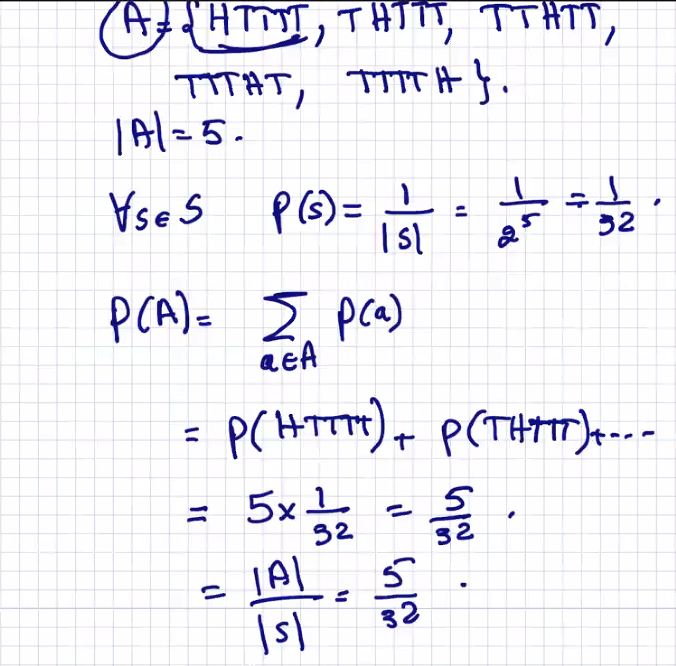 A = {HTTTT, THTTT, TTHTT,
TTTHT, TTTTH}.
|A| = 5.
∀s∈S P(s) = 1/|S| = 1/2^5 = 1/32.
P(A) = ∑_{a∈A} P(a)
= P(HTTTT) + P(THTTT) + ----
= 5 × 1/32 = 5/32.
= |A|/|S| = 5/32.